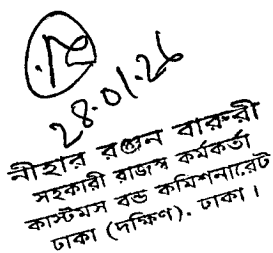 28.01.26
নীহার রঞ্জন বারুরী
সহকারী রাজস্ব কর্মকর্তা
কাস্টমস বন্ড কমিশনারেট
ঢাকা (দক্ষিণ). ঢাকা।